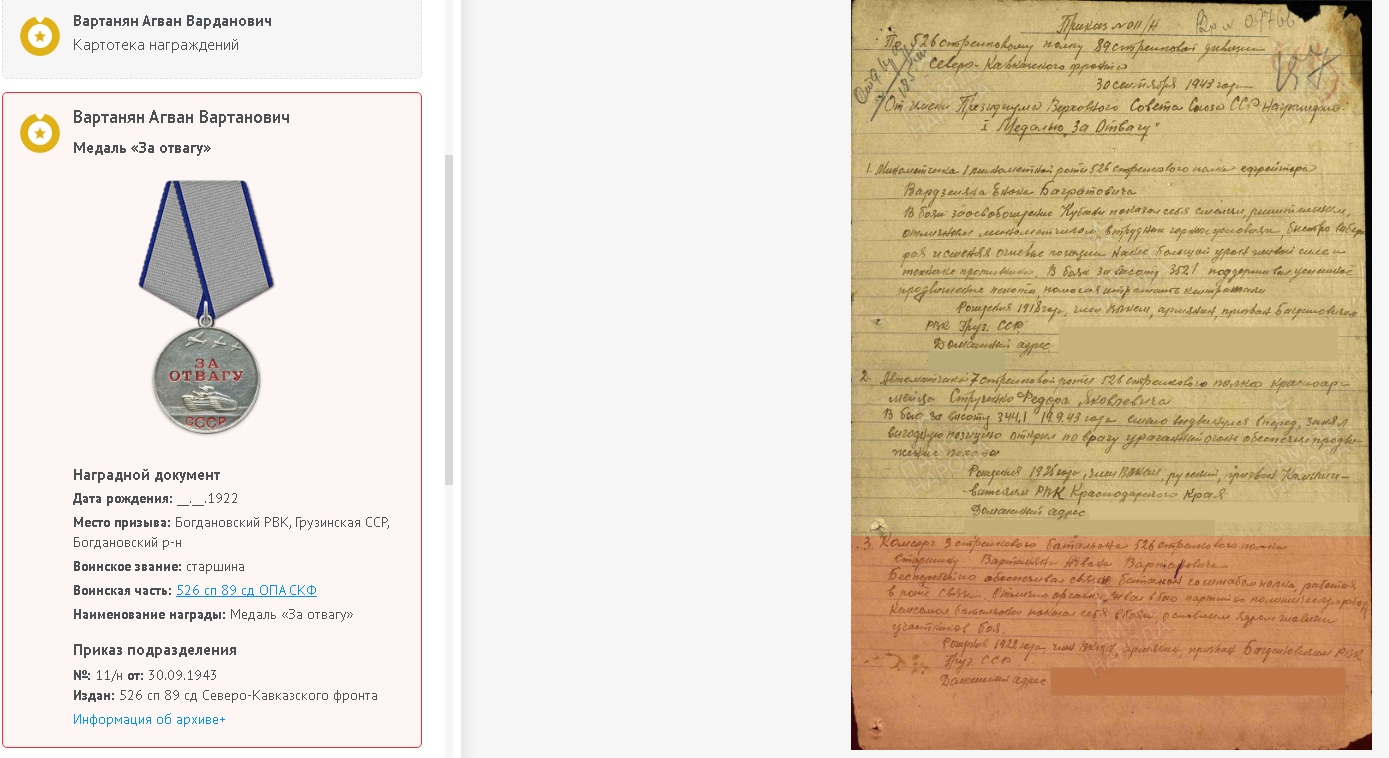 Вартанян Агван Варданович
Картотека награждений
Вартанян Агван Вартанович
Медаль «За отвагу»
ЗА
ОТВАГУ
СССР
Наградной документ
Дата рождения: __.__.1922
Место призыва: Богдановский РВК, Грузинская ССР,
Богдановский р-н
Воинское звание: старшина
Воинская часть: 526 сп 89 сд ОПА СКФ
Наименование награды: Медаль «За отвагу»
Приказ подразделения
№: 11/н от: 30.09.1943
Издан: 526 сп 89 сд Северо-Кавказского фронта
Информация об архиве+
Приказ №011/н
По 526 стрелковому полку 89 стрелковой дивизии
Северо-Кавказского фронта
30 сентября 1943 года
От имени Президиума Верховного Совета Союза ССР награждаю
I Медалью „За Отвагу"
1. Минометчика 1 минометной роты 526 стрелкового полка ефрейтора
Багратовича
В боях за освобождение Кубани показал себя смелым, решительным,
отличным минометчиком, в трудных горных условиях, быстро выбирая
и сменяя огневые позиции нанес большой урон живой силе и
технике противника. В боях за высоту 352.1 поддерживал успешное
продвижение пехоты, помогая отражать контратаки
Рождения 1918 года, член ВЛКСМ, армянин, призван Богдановским
РВК Груз. ССР
Домашний адрес
2. Автоматчика 7 стрелковой роты 526 стрелкового полка красноар-
мейца Струченко Федора Яковлевича
В бою за высоту 344.1 19.9.43 года смело выдвинулся вперед, занял
выгодную позицию открыл по врагу ураганный огонь обеспечил продви-
жение пехоты
Рождения 1925 года, член ВЛКСМ, русский, призван
РВК Краснодарского Края
Домашний адрес
3. Комсорг 3 стрелкового батальона 526 стрелкового полка
Старшину Вартаняна Агвана Вартановича
Бесперебойно обеспечивал связь батальона со штабом полка, работая
в роте связи. Отлично
Комсомол батальона показал себя в боях,
участников боя.
Рождения 1922 года член ВЛКСМ, армянин, призван Богдановским РВК
Груз ССР
Домашний адрес